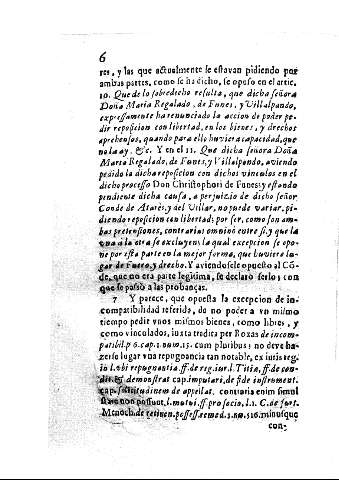 6
res, y las que actualmente se estavan pidiendo por
ambas partes, como se ha dicho, se opuso en el artic.
10. Que de lo sobredicho resulta, que dicha señora
Doña Maria Regalado, de Funes, y Villalpando,
expressamente ha renunciado la accion de poder pe-
dir reposicion con libertad, en los bienes, y drechos
aprehensos, quando para ello huviera capacidad, que
no la ay. &c. Y en el 11. Que dicha señora Doña
Maria Regalado, de Funes, y Villalpando, aviendo
pedido la dicha reposicion con dichos vinculos en el
dicho processo Don Christophori de Funes; y estando
pendiente dicha causa, a perjuizio de dicho señor
Conde de Atarés, y del Villar, no puede variar, pi-
diendo reposicion con libertad; por ser, como son am-
bas pretensiones, contrarias omninò entre sì, y que la
vna à la otra se excluyen, la qual excepcion se opo-
ne por esta parte en la mejor forma, que huviere lu-
gar de Fuero, y drecho. Y aviendosele opuesto al Cõ-
de, que no era parte legitima, se declarò serlo; con
que se passò a las probanças.
7 Y parece, que opuesta la excepcion de in-
compatibilidad referida, de no poder a vn mismo
tiempo pedir vnos mismos bienes, como libres, y
como vinculados, iuxta tradita per Roxas de incom-
patibil. p. 6. cap. 1. num. 15. cum pluribus: no deve ha-
zerse lugar vna repugnancia tan notable, ex iuris reg-
io l. vbi repugnantia, ff. de reg. iur. l. Titia, ff. de con-
dit. & demonstrat cap. imputari, de fide instrument.
cap. sollicitudinem de appellat. contraria enim simul
stare non possunt, l. mutui, ff. pro socio, l. 1. C. de furt.
Menoch. de retinen. possess. remed. 3. nu. 516. minusque
con-